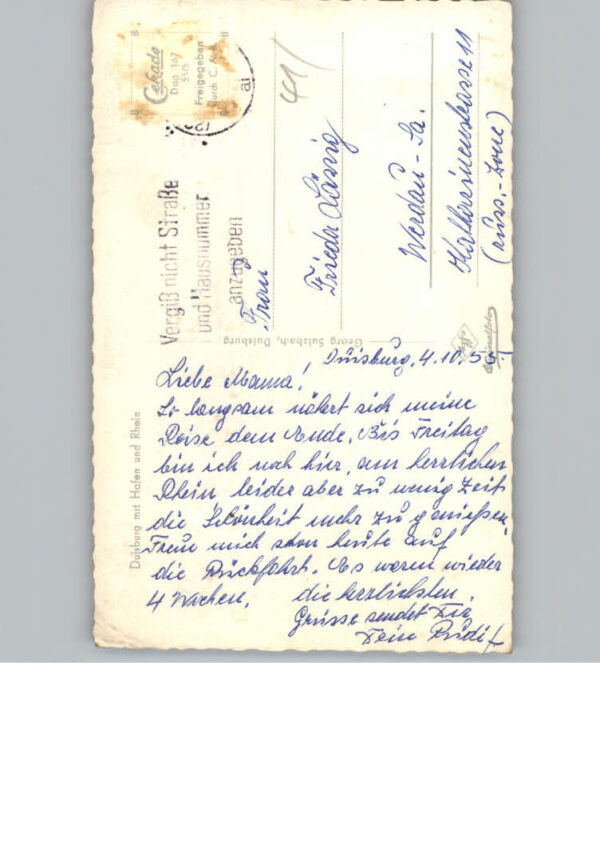 Cekade
Dag 167
5575
Freigegeben
durch C. A. B.
B
B
B
B
441/
Vergiß nicht Straße
und Hausnummer
anzugeben
Frau
Frieda Lässig
Werdau-Sa.
Katharinenstrasse 11
(russ.-Zone)
Georg Sulzbach, Duisburg
Agfa
Duisburg mit Hafen und Rhein
Duisburg, 4.10.
Liebe Mama!
So langsam nähert sich meine
Reise dem Ende. Bis Freitag
bin ich noch hier, am herrlichen
Rhein leider aber zu wenig Zeit
die Schönheit mehr zu genießen.
Freu mich schon heute auf
die Rückfahrt. Es waren wieder
4 Wochen. die herzlichsten
Grüsse sendet Dir
Dein Rudi